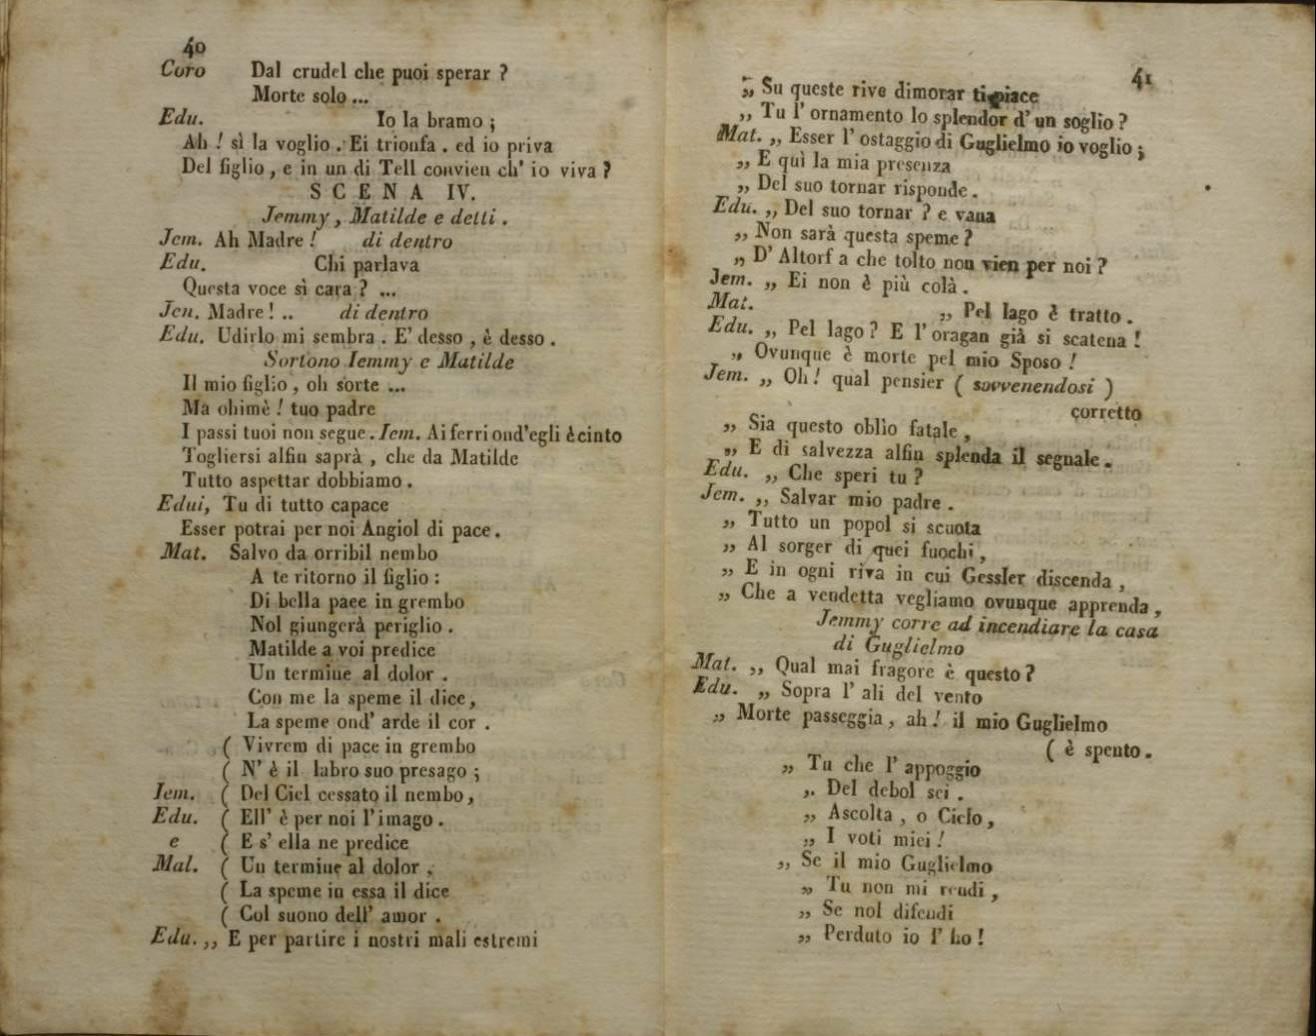 40
Coro Dal crudel che puoi sperar ?
Morte solo ...
Edu. Io la bramo ;
Ah ! sì la voglio . Ei trionfa . ed io priva
Del figlio , e in un di Tell convien ch' io viva ?
SCENA IV.
Jemmy , Matilde e detti .
Jem. Ah Madre ! di dentro
Edu. Chi parlava
Questa voce sì cara ? ...
Jen. Madre ! .. di dentro
Edu. Udirlo mi sembra . E' desso , è desso .
Sortono Iemmy e Matilde
Il mio figlio , oh sorte ...
Ma ohimè ! tuo padre
I passi tuoi non segue . Iem. Ai ferri ond'egli è cinto
Togliersi alfin saprà , che da Matilde
Tutto aspettar dobbiamo .
Edui, Tu di tutto capace
Esser potrai per noi Angiol di pace .
Mat. Salvo da orribil nembo
A te ritorno il figlio :
Di bella pace in grembo
Nol giungerà periglio .
Matilde a voi predice
Un termine al dolor .
Con me la speme il dice ,
La speme ond' arde il cor .
( Vivrem di pace in grembo
( N' è il labro suo presago ;
Iem. ( Del Ciel cessato il nembo ,
Edu. ( Ell' è per noi l'imago .
e ( E s' ella ne predice
Mal. ( Un termine al dolor .
( La speme in essa il dice
( Col suono dell' amor .
Edu. ,, E per partire i nostri mali estremi
41
,, Su queste rive dimorar ti piace
,, Tu l' ornamento lo splendor d' un soglio ?
Mat. ,, Esser l' ostaggio di Guglielmo io voglio ;
,, E quì la mia presenza
,, Del suo tornar risponde .
Edu. ,, Del suo tornar ? e vana
,, Non sarà questa speme ?
,, D' Altorf a che tolto non vien per noi ?
Jem. ,, Ei non è più colà .
Mat. ,, Pel lago è tratto .
Edu. ,, Pel lago ? E l' oragan già si scatena !
,, Ovunque è morte pel mio Sposo !
Jem. ,, Oh ! qual pensier ( sovvenendosi )
corretto
,, Sia questo oblìo fatale ,
,, E di salvezza alfin splenda il segnale .
Edu. ,, Che speri tu ?
Jem. ,, Salvar mio padre .
,, Tutto un popol si scuota
,, Al sorger di quei fuochi ,
,, E in ogni riva in cui Gessler discenda ,
,, Che a vendetta vegliamo ovunque apprenda ,
Jemmy corre ad incendiare la casa
di Guglielmo
Mat. ,, Qual mai fragore è questo ?
Edu. ,, Sopra l' ali del vento
,, Morte passeggia , ah ! il mio Guglielmo
( è spento .
,, Tu che l' appoggio
,, Del debol sei .
,, Ascolta , o Cielo ,
,, I voti miei !
,, Se il mio Guglielmo
,, Tu non mi rendi ,
,, Se nol difendi
,, Perduto io l' ho !